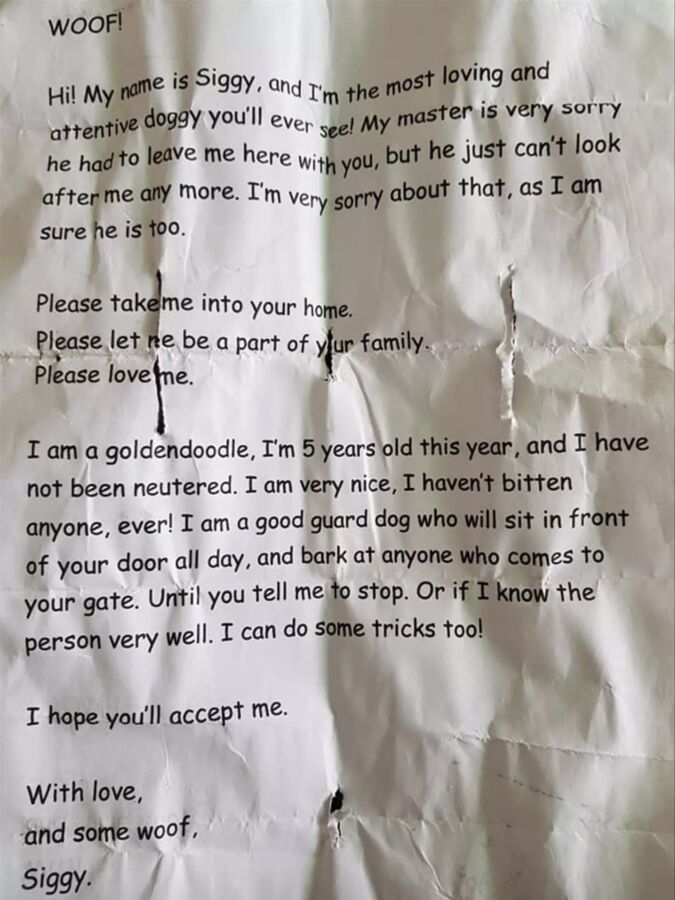 WOOF!
Hi! My name is Siggy, and I'm the most loving and
attentive doggy you'll ever see! My master is very sorry
he had to leave me here with you, but he just can't look
after me any more. I'm very sorry about that, as I am
sure he is too.
Please take me into your home.
Please let me be a part of your family.
Please love me.
I am a goldendoodle, I'm 5 years old this year, and I have
not been neutered. I am very nice, I haven't bitten
anyone, ever! I am a good guard dog who will sit in front
of your door all day, and bark at anyone who comes to
your gate. Until you tell me to stop. Or if I know the
person very well. I can do some tricks too!
I hope you'll accept me.
With love,
and some woof,
Siggy.